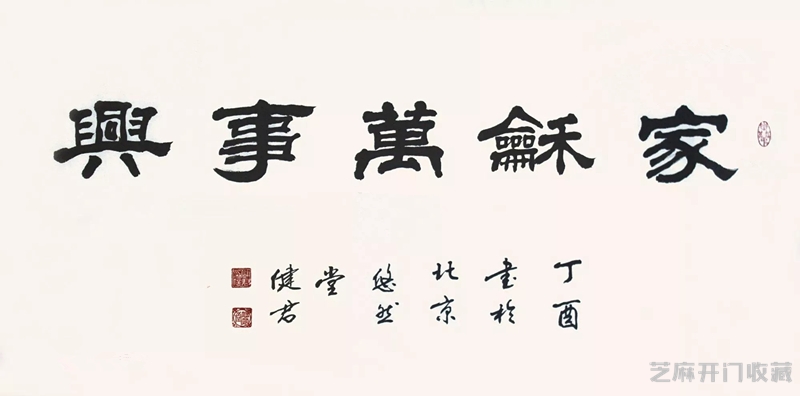 家龢萬事興
丁酉
書於
北京
悠然
堂
健君
芝麻开门收藏